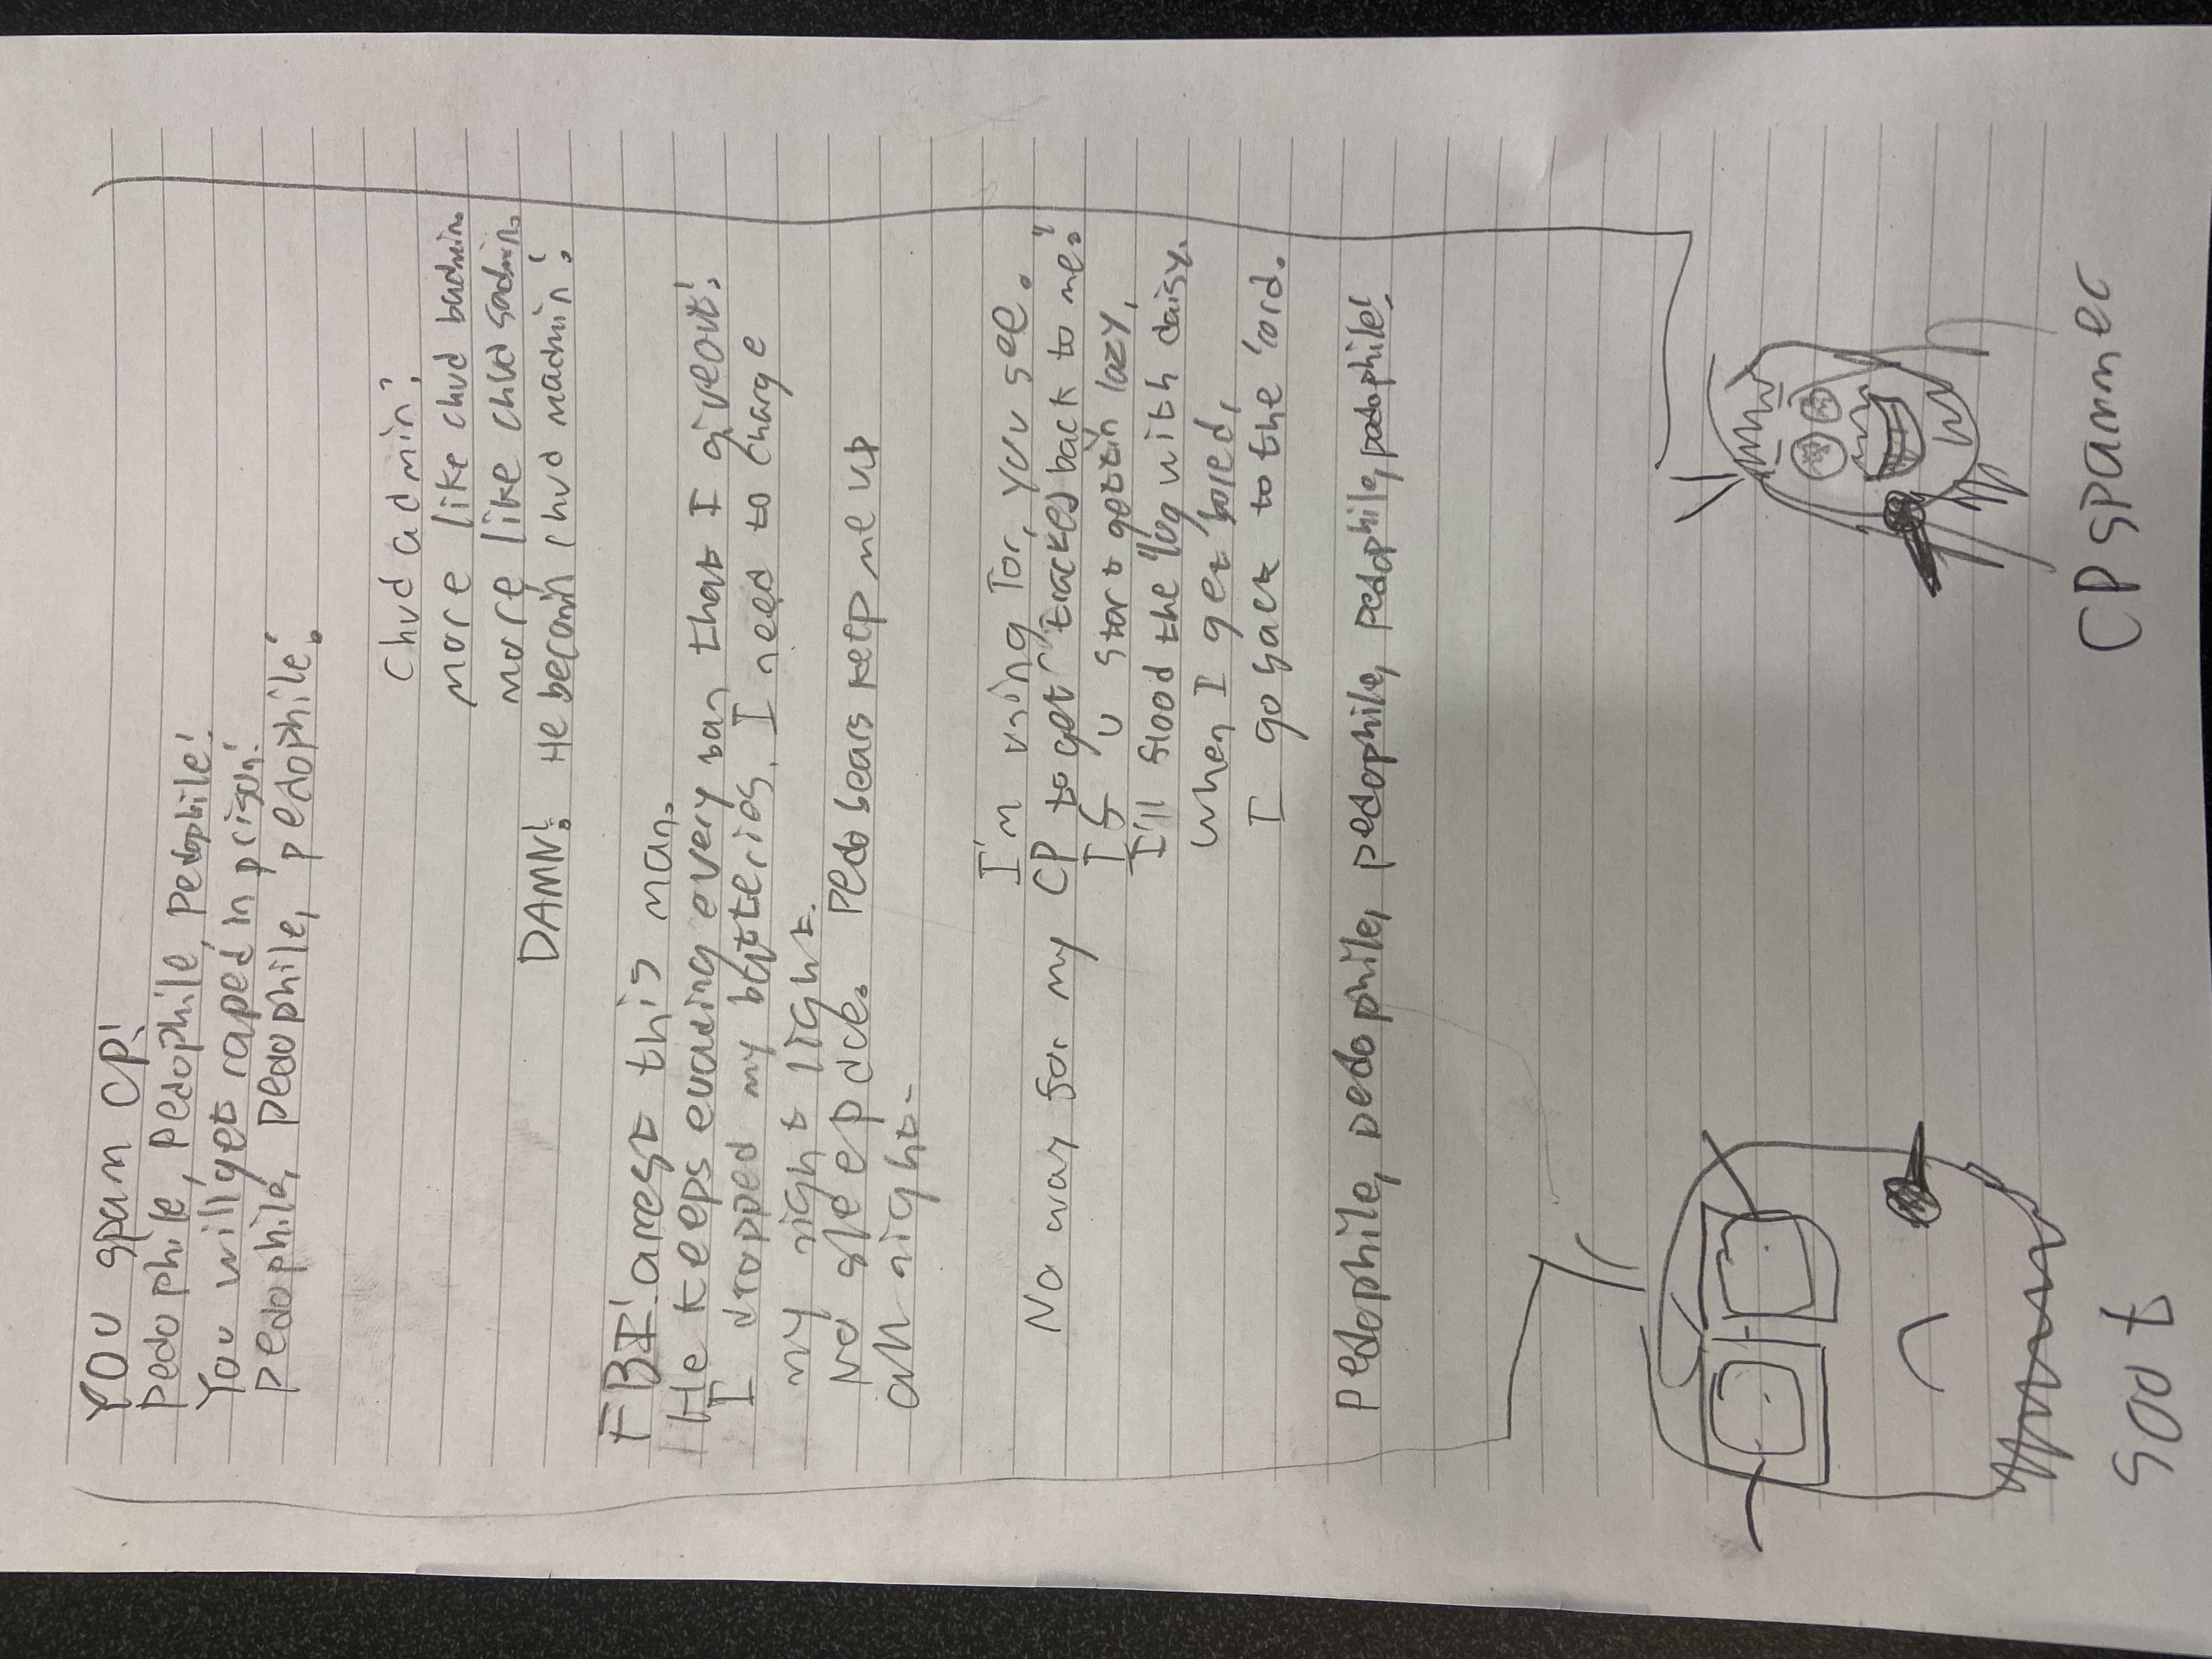 You spam CP!
Pedophile, pedophile, pedophile!
You will get raped in prison!
Pedophile, pedophile, pedophile!
Chud admin?
more like chud badmin.
more like chud sadmin.
DAMN! He becomin chud madmin!
FBI! arrest this man.
He keeps evading every ban that I giveout!
I dropped my batteries. I need to change
my night light.
No sleep due. Pedobears keep me up
all night.
I'm using Tor, you see.
No way for my CP to get "tracked back to me."
If U start gettin lazy,
I'll flood the 'log with daisy.
When I get bored,
I go back to the 'cord.
pedophile, pedophile, pedophile, pedophile, pedophile, pedophile!
Soot
CP spammer